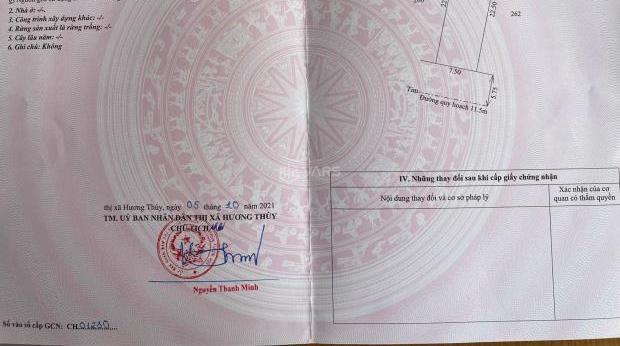 2. Nhà ở: -/-.
3. Công trình xây dựng khác: -/-
4. Rừng sản xuất là rừng trồng: -/-
5. Cây lâu năm: -/-
6. Ghi chú: Không
22.50
262
7.50
5.75
Đường quy hoạch 11.5m
thị xã Hương Thủy, ngày 05 tháng 10 năm 2021
TM. UỶ BAN NHÂN DÂN THỊ XÃ HƯƠNG THỦY
CHỦ TỊCH
Nguyễn Thanh Minh
Số vào sổ cấp GCN: CH.01230
IV. Những thay đổi sau khi cấp giấy chứng nhận
Nội dung thay đổi và cơ sở pháp lý
Xác nhận của cơ quan có thẩm quyền